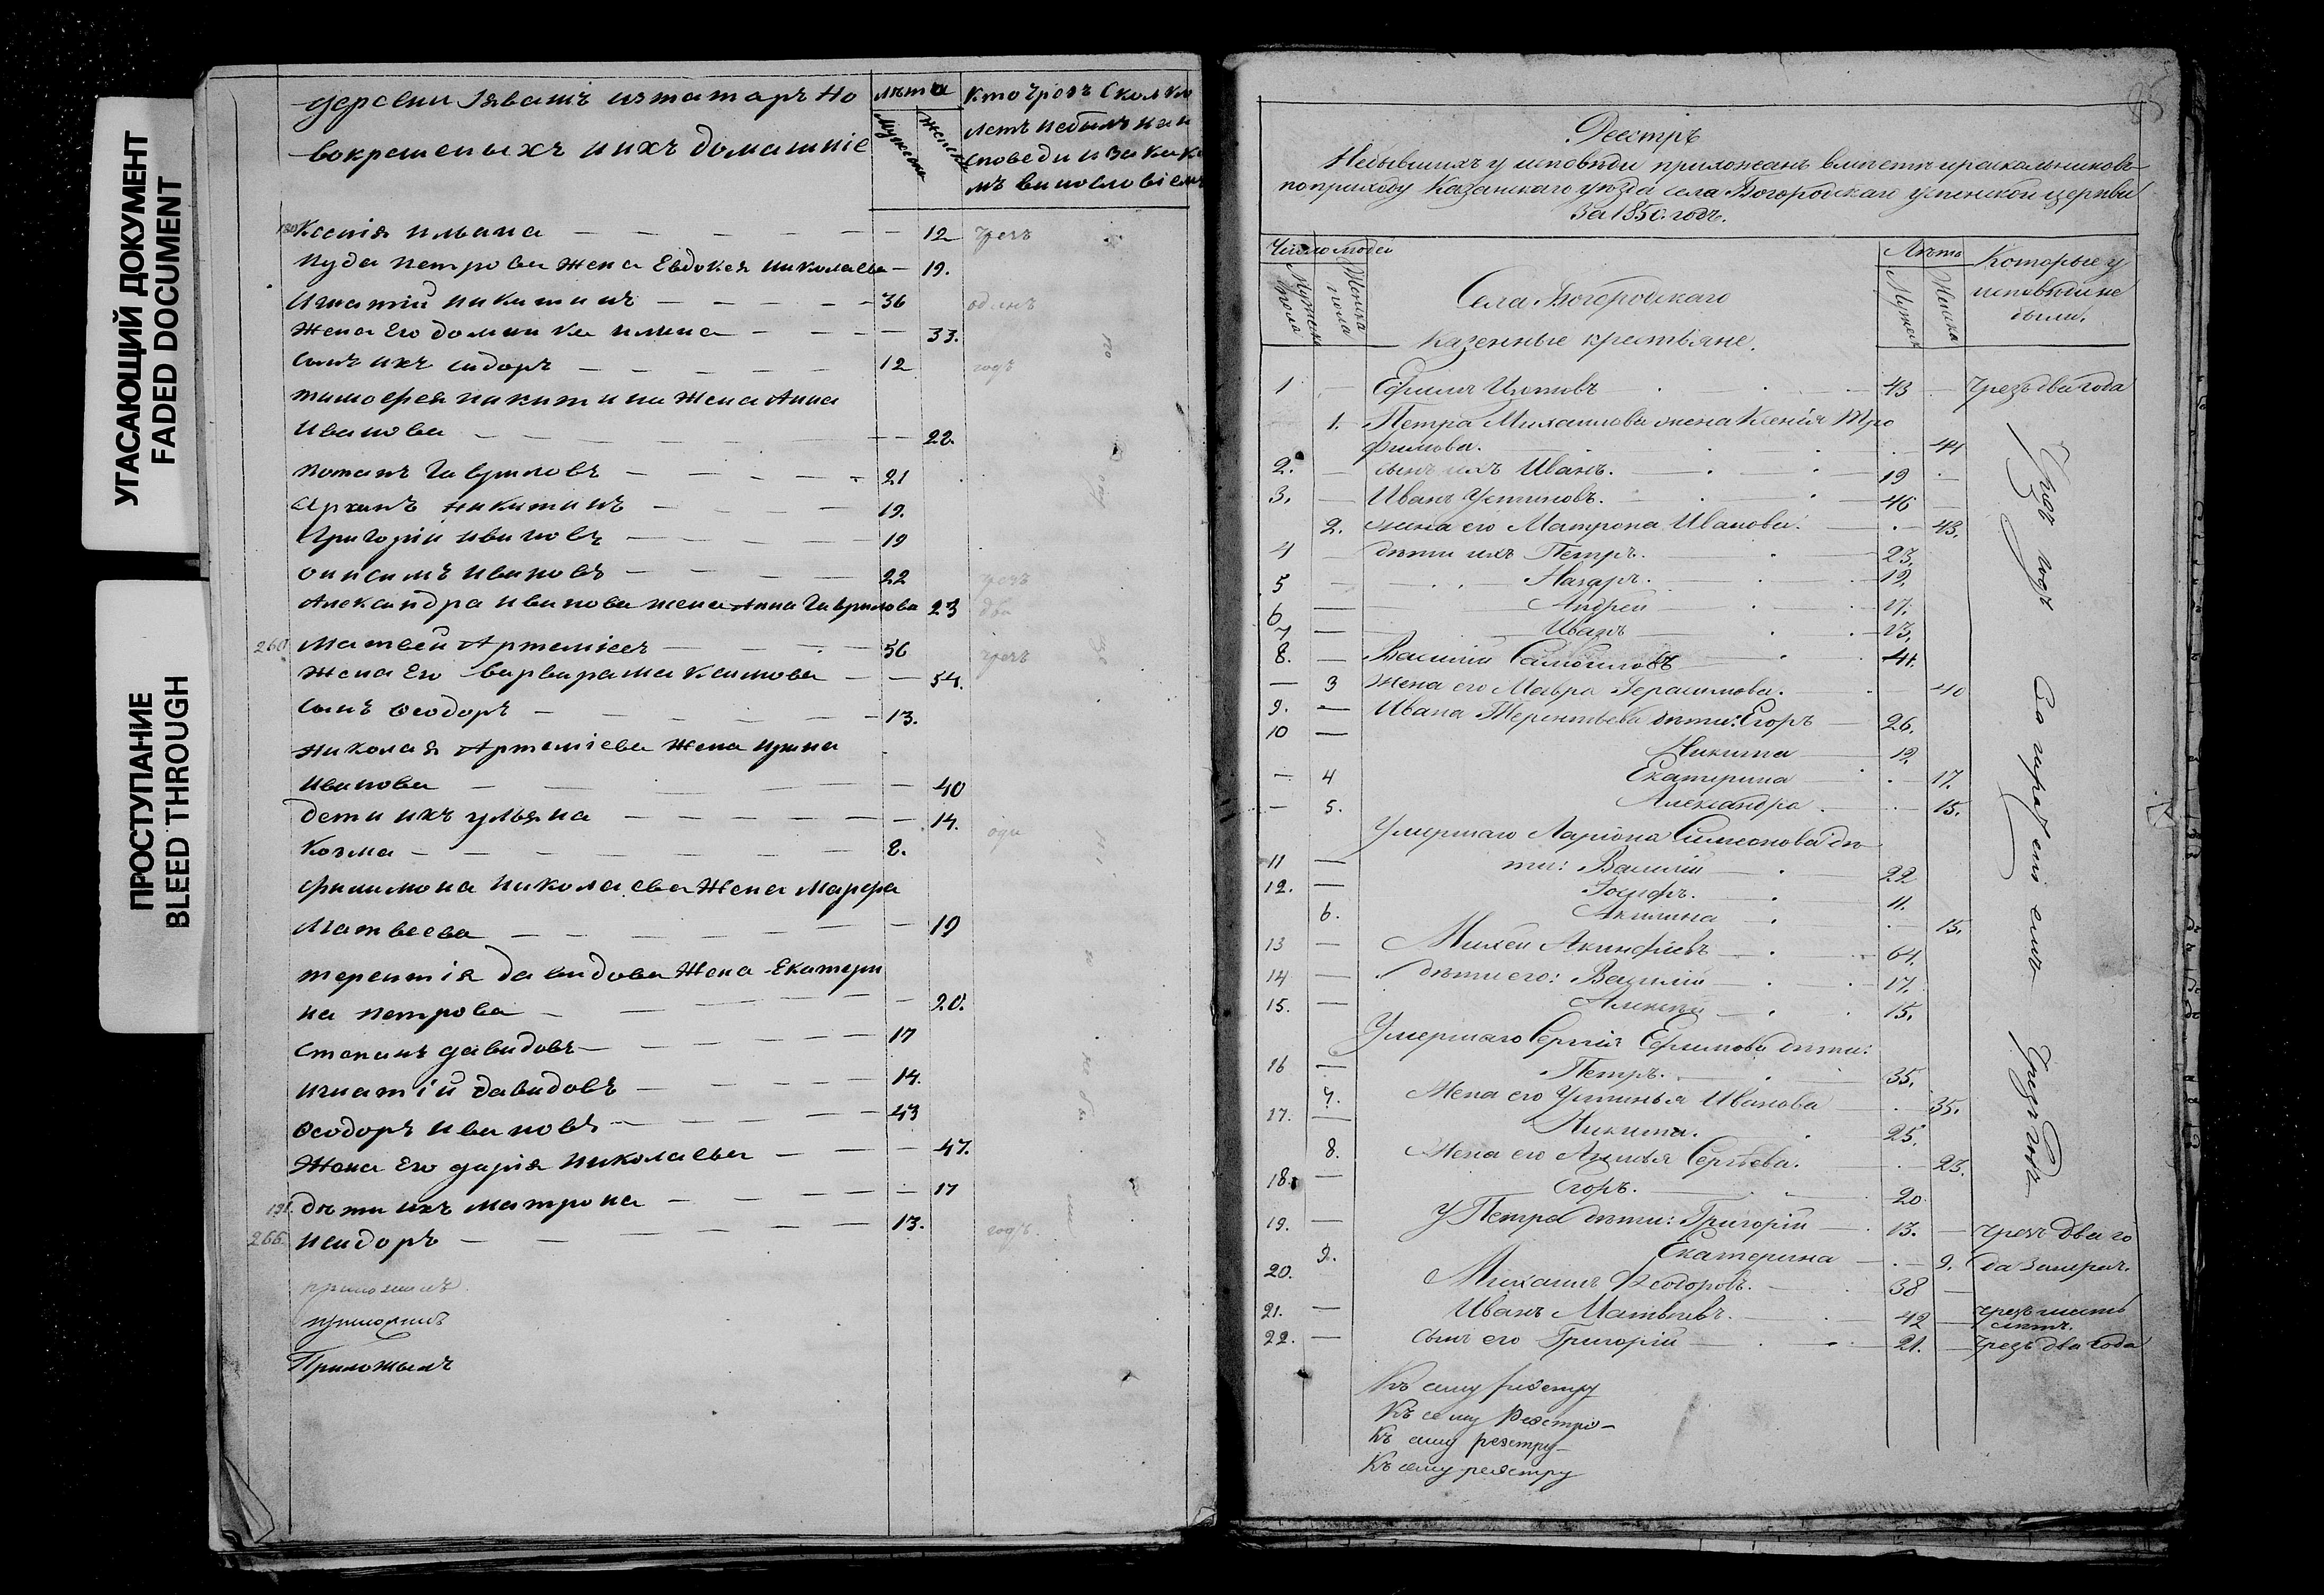 УГАСАЮЩИЙ ДОКУМЕНТ
FADED DOCUMENT
ПРОСТУПАНИЕ
BLEED THROUGH
деревни Зявашъ изтатаръ Но
вокрещеныхъ иихъ домашніе
лѣта
Мужеска
Женска
кто чрезъ Сколко
летъ небылъ на и
споведи и За каки
мъ винословіемъ
Ксенія ильина 12 чрезъ
Иуда петрова жена Евдокея николаева 19.
Игнатій никитинъ 36 одинъ
жена Его домника илина 33.
сынъ ихъ сидоръ 12 годъ
тимофея никитина жена Анна
Иванова 22.
потапъ Гавриловъ 21
Архипъ никитинъ 19.
Григорій ивановъ 19
онисимъ ивановъ 22 чрезъ
Александра иванова жена Анна Гаврилова 23 два
260 Матвей Артеміевъ 56 чрезъ
жена Его варвара максимова 54.
сынъ Ѳеодоръ 13.
николая Артеміева жена ирина
иванова 40
дети ихъ ульяна 14.
Козма 8.
филимона николаева жена Марфа
Матвеева 19
терентія давидова жена Екатери
на петрова 20.
степанъ давидовъ 17
игнатій давидовъ 14.
Ѳеодоръ ивановъ 43
жена Его дарія николаева 47.
191. дѣти ихъ матрона 17
266. исидоръ 13. годъ.
приложилъ
приложилъ
Приложилъ
85
Реестръ
Небывшихъ у исповѣди прихожанъ вмѣстѣ ираскольниковъ
поприходу Казанскаго уѣзда села Богородскаго Успенской церкви
За 1850. годъ.
Число людей
Мужеска пола
Женска пола
Села Богородскаго
Казенные крестьяне.
Лѣта
Мужеска
Женска
Которые у
исповѣди не
были.
1 Ефимъ Изотовъ 43 чрезъ два года
1. Петра Михаилова жена Ксенія Тро
фимова. 44
2. сынъ ихъ Иванъ. 19
3. Иванъ Устиновъ. 46
2. жена его Матрона Иванова. 43.
4 дѣти ихъ Петръ. 23.
5 Назаръ. 19.
6 Андрей 17.
7 Иванъ 13.
8. Василій Самойловъ 41.
3 жена его Мавра Герасимова. 40
9. Ивана Терентьева дѣти: Егоръ 26.
10 Никита 12
4 Екатерина 17.
5. Александра. 15.
Умершаго Ларіона Симеонова дѣ
11 ти: Василій 22
12. Іосифъ. 11.
6. Акилина 15.
13 Михей Акинфіевъ 64.
14 дѣти его: Василій 17.
15. Алексѣй 15.
Умершаго Сергія Ефимова дѣти:
16 Петръ. 35.
7. Жена его Устинья Иванова 35.
17. Никита. 25.
8. Жена его Анисья Сергѣева. 23.
18. Егоръ. 20
19. У Петра дѣти: Григорій 13. чрезъ два го
9. Екатерина 9. да
20. Михаилъ Ѳеодоровъ. 38
21. Иванъ Матвѣевъ. 42 чрезъ шесть
лѣтъ.
22. Сынъ его Григорій 21. чрезъ два года
чрезъ годъ За
чрезъ Годъ
Къ сему реестру
Къ сему Реестру
Къ сему реестру
Къ сему реестру